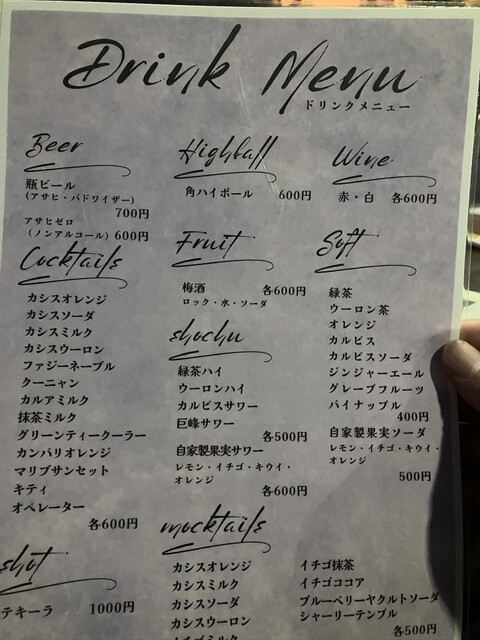 Drink Menu
ドリンクメニュー
Beer
瓶ビール
(アサヒ・バドワイザー)
700円
アサヒゼロ
(ノンアルコール) 600円
Cocktails
カシスオレンジ
カシスソーダ
カシスミルク
カシスウーロン
ファジーネーブル
クーニャン
カルアミルク
抹茶ミルク
グリーンティークーラー
カンパリオレンジ
マリブサンセット
キティ
オペレーター
各600円
shot
テキーラ 1000円
Highball
角ハイボール 600円
Fruit
梅酒 各600円
ロック・水・ソーダ
shochu
緑茶ハイ
ウーロンハイ
カルピスサワー
巨峰サワー
各500円
自家製果実サワー
レモン・イチゴ・キウイ・
オレンジ
各600円
Wine
赤・白 各600円
Soft
緑茶
ウーロン茶
オレンジ
カルピス
カルピスソーダ
ジンジャーエール
グレープフルーツ
パイナップル
400円
自家製果実ソーダ
レモン・イチゴ・キウイ・
オレンジ
500円
mocktails
カシスオレンジ
カシスミルク
カシスソーダ
カシスウーロン
イチゴ抹茶
イチゴココア
ブルーベリーヤクルトソーダ
シャーリーテンプル
各500円